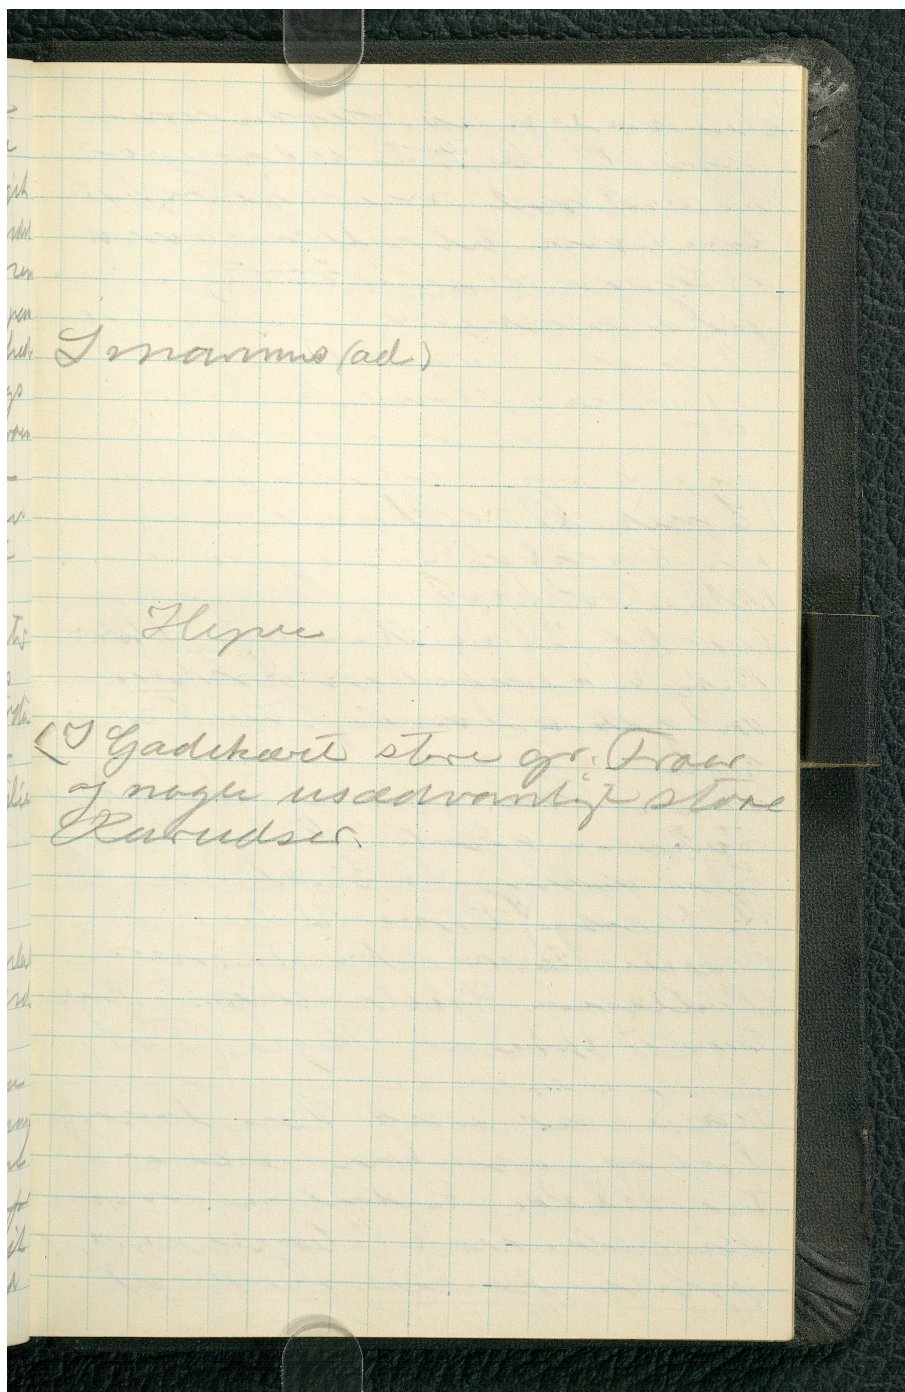 L marinus (ad)
Hyper
(I Gadekæret store gr. Frøer
og nogle usædvanligt store
Karudser.